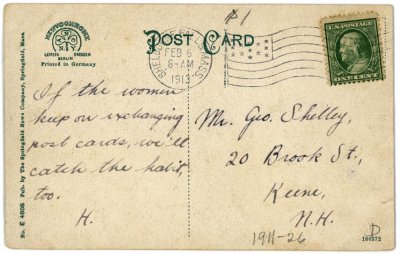 $1
POST CARD
LEIPZIG DRESDEN
BERLIN
Printed in Germany
FEB 6
8-AM
1913
MASS.
U.S. POSTAGE
ONE CENT
If the women
keep on exchanging
post cards, we'll
catch the habit,
too.
H.
Mr. Geo. Shelley,
20 Brook St.,
Keene,
N.H.
1911-26
D
184572
No. E 4808 Pub. by The Springfield News Company, Springfield, Mass.